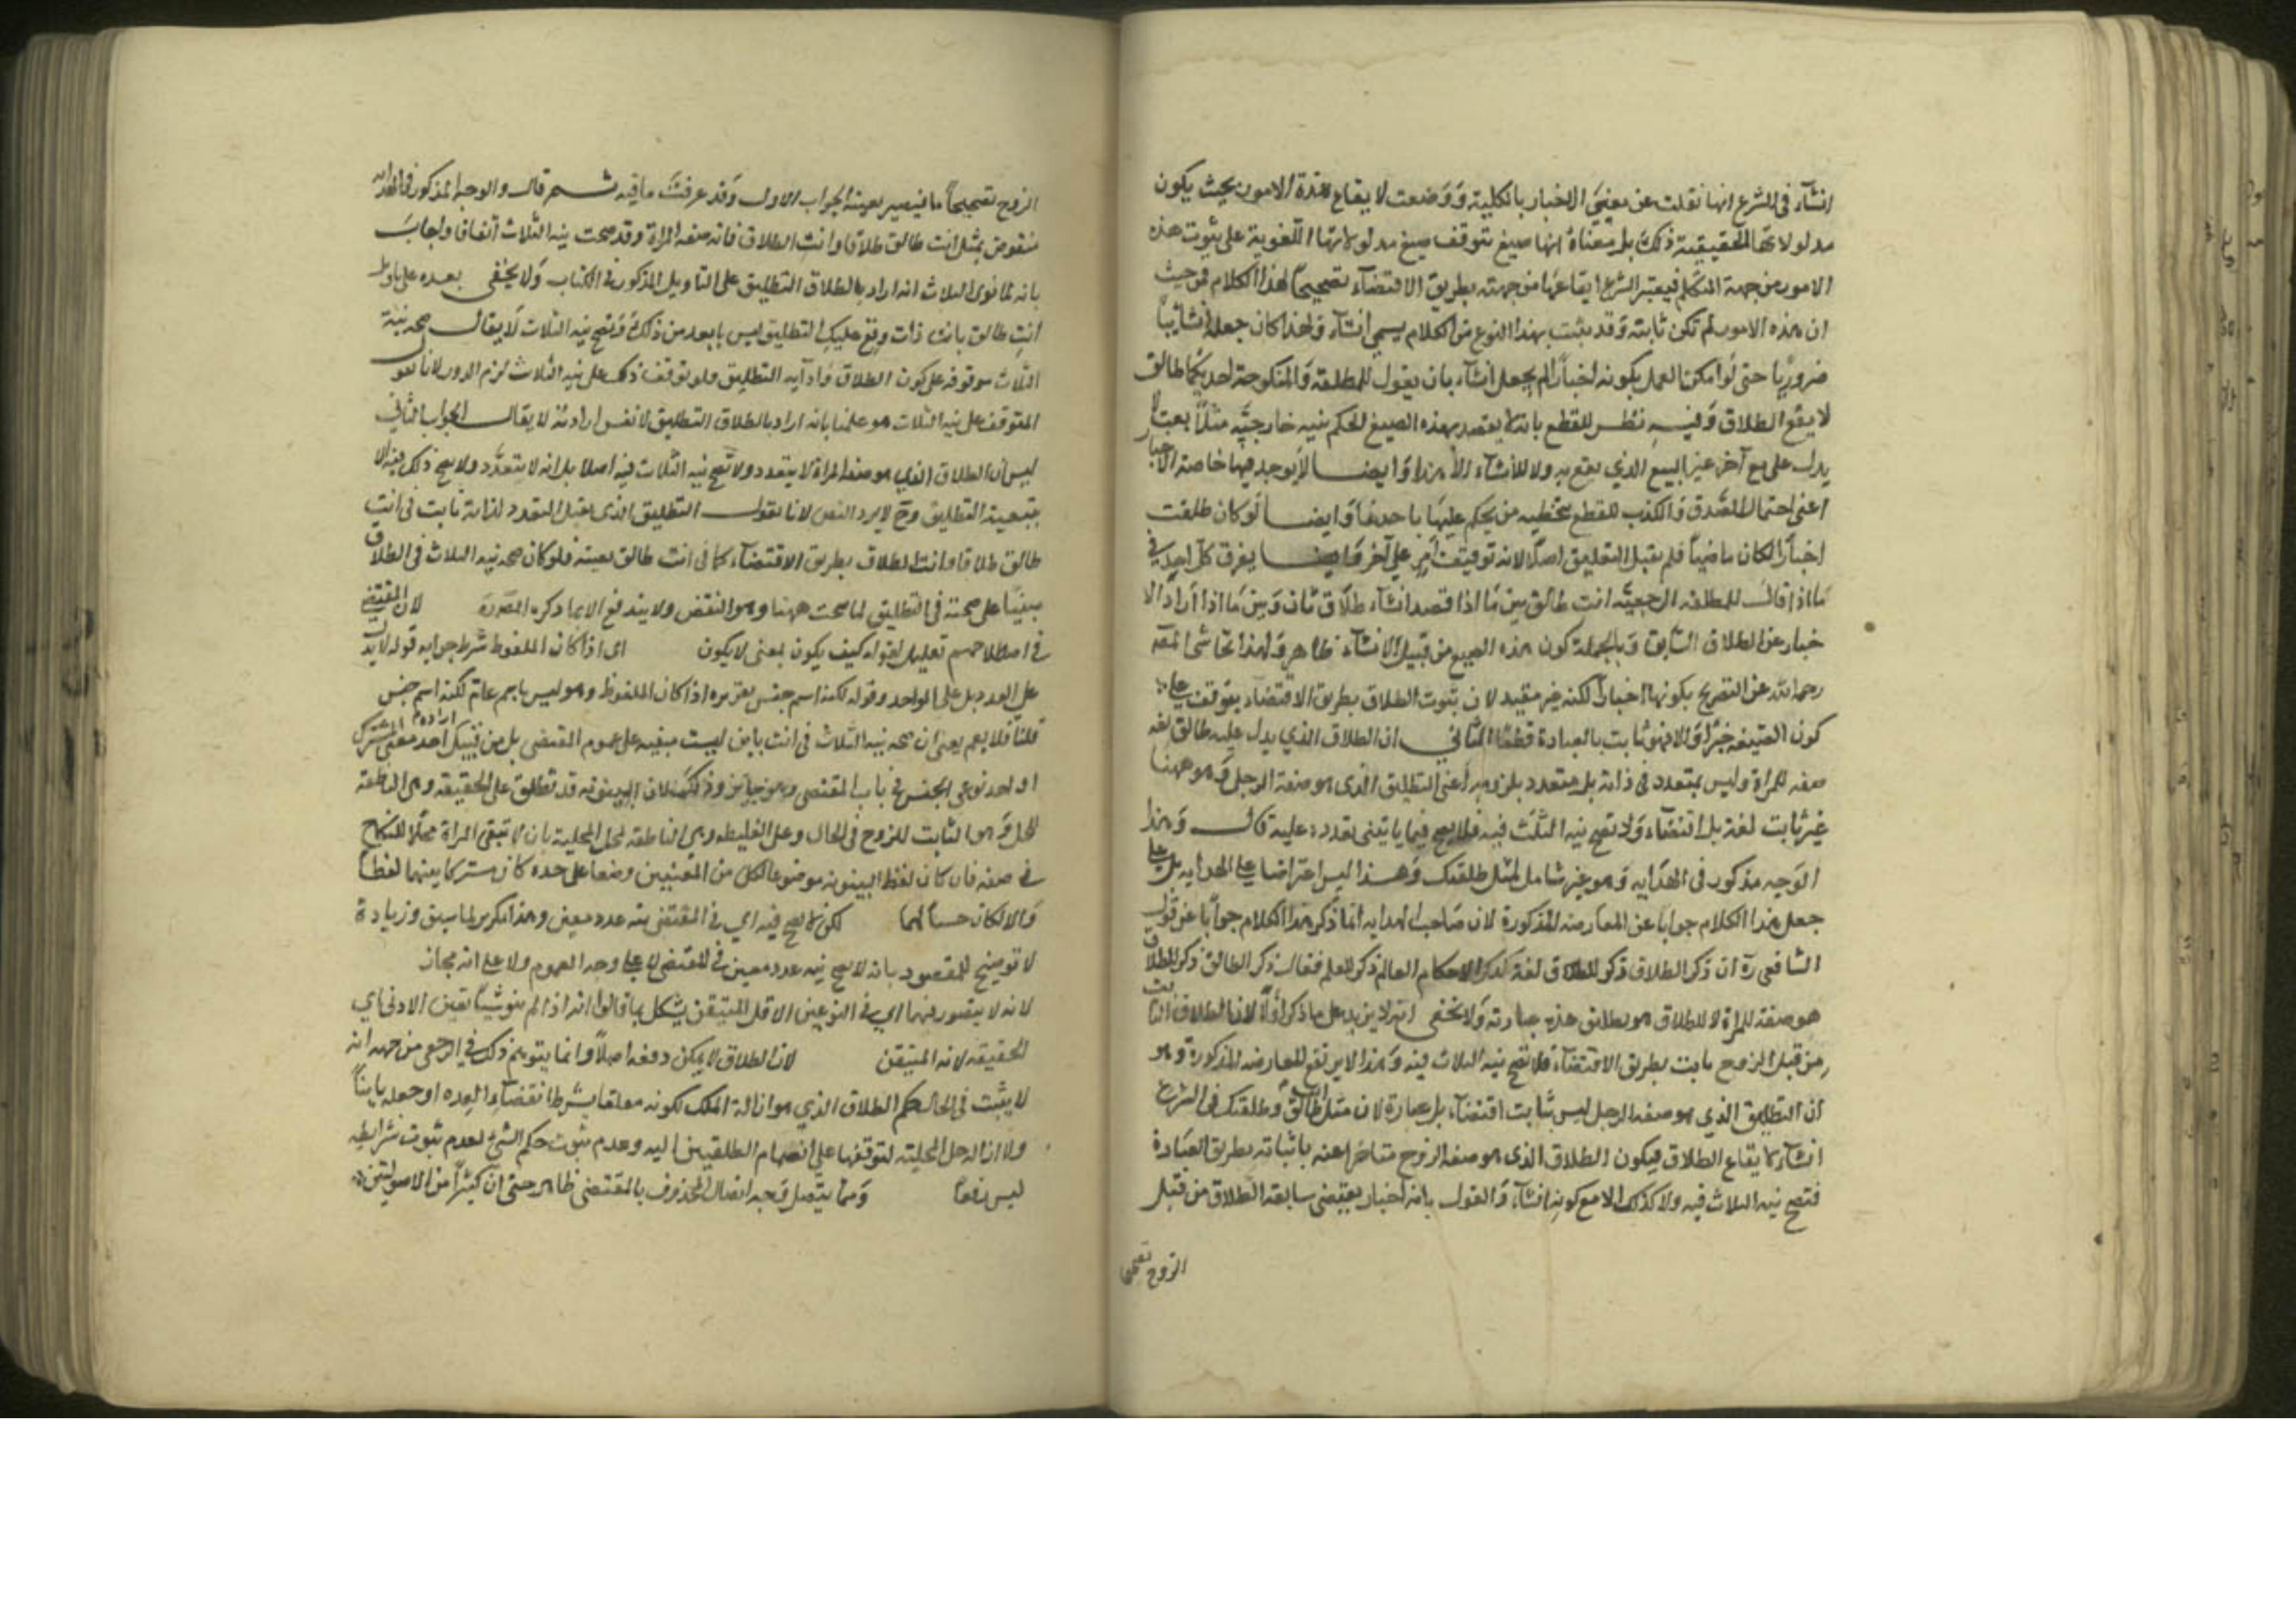 انشاء في الشرع انها نقلت عن معنى الاخبار بالكلية ووضعت لايقاع هذه الامور بحيث يكون
مدلولاتها الحقيقية ذلك بل معناه انها صيغ تتوقف صيغ مدلولاتها اللغوية على ثبوت هذه
الامور من جهة المتكلم فيعتبر الشرع ايقاعها من جهته بطريق الاقتضاء تصحيحا لهذا الكلام فمن حيث
ان هذه الامور لم تكن ثابتة وقد يثبت بهذا النوع من الكلام يسمى انشاء ولهذا كان جعله انشائيا
ضروريا حتى لو امكن العمل بكونه اخبارا لم يجعل انشاء بان يقول للمطلقة والمنكوحة احديكما طالق
لا يقع الطلاق وفيه نظر للقطع بانه لا يقصد بهذه الصيغ الحكم بنسبة خارجية مثلا بعت لا
يدل على بيع آخر غير البيع الذي يقع به ولا للانشاء الا هذا وايضا لا يوجد فيها خاصة الاخبار
اعنى احتمال الصدق والكذب للقطع بتخطية من يحكم عليها باحدهما وايضا لو كان طلقت
اخبارا لكان ماضيا فلم يقبل التعليق اصلا لانه توقيف امر على آخر وايضا يفرق كل احد في
ما اذا قال للمطلقة الرجعية انت طالق بين ما اذا قصد انشاء طلاق ثان وبين ما اذا اراد الا
خبار عن الطلاق السابق وبالجملة كون هذه الصيغ من قبيل الانشاء ظاهر ولهذا تحاشى المص
رحمه الله عن التصريح بكونها اخبارا لكنه غير مفيد لان ثبوت الطلاق بطريق الاقتضاء يتوقف على
كون الصيغة خبرا والا فهو ثابت بالعبارة قطعا الثاني ان الطلاق الذي يدل عليه طالق لغة
صفة للمراة وليس بمتعدد في ذاته بل بتعدد ملزومه اعنى التطليق الذى هو صفة الرجل وهو ههنا
غير ثابت لغة بل اقتضاء ولا تصح نية الثلث فيه فلا يصح فيما يبتني تعدده عليه قال وهذا
الوجه مذكور في الهداية وهو غير شامل لمثل طلقتك وهذا ليس اعتراضا على الهداية بل على
جعل هذا الكلام جوابا عن المعارضة المذكورة لان صاحب الهداية انما ذكر هذا الكلام جوابا عن قول
الشافعى ره ان ذكر الطلاق ذكر للطلاق لغة كذكر العالم ذكر للعلم فقال ذكر الطالق ذكر لطلاق
هو صفة للمراة لا لطلاق هو تطليق هذه عبارته ولا يخفى انه لا يزيد على ما ذكر اولا لان الطلاق الثابت
من قبل الزوج ثابت بطريق الاقتضاء فلا تصح نية الثلاث فيه وهذا لا يرفع المعارضة المذكورة وهو
ان التطليق الذي هو صفة الرجل ليس ثابت اقتضاء بل عبارة لان مثل انت طالق وطلقتك في الشرع
انشاء لايقاع الطلاق فيكون الطلاق الذى هو صفة الزوج باثباته بطريق العبارة
فتصح نية الثلاث فيه ولا كذلك الا مع كونه انشاء والقول بانه اخبار يقتضى سابقة الطلاق من قبل
الزوج تصحيحا
الزوج تصحيحا ما فيصير بعينه الجواب الاول وقد عرفت ما فيه ثم قال والوجه المذكور في الهداية
منقوض بمثل انت طالق طلاقا وانت الطلاق فانه صفة المراة وقد صحت نية الثلاث اتفاقا واجاب
بانه لما نوى الثلاث انه اراد بالطلاق التطليق على التاويل المذكور في الكتاب ولا يخفى بعده على تاويل
انت طالق بانت ذات وقع عليك التطليق ليس بابعد من ذلك وتصح نية الثلاث لا يقال صحة نية
الثلاث موقوفة على كون الطلاق التطليق ولو توقف ذلك على نية الثلاث لزم الدور لانا نقول
المتوقف على نية الثلاث هو علمنا بانه اراد بالطلاق التطليق لا نفس ارادته لا يقال الجواب الثاني
ليس ان الطلاق الذي هو صفة المراة لا يتعدد ولا تصح نية الثلاث فيه اصلا بل انه لا يتعدد ولا يصح ذلك فيه الا
بتبعية التطليق وح لا يرد النقض لانا نقول التطليق الذى يقبل التعدد لذاته ثابت في انت
طالق طلاقا وانت الطلاق بطريق الاقتضاء كما فى انت طالق بعينه فلو كان صحة نية الثلاث في الطلاق
مبنيا على صحته في التطليق لما صحت ههنا وهو النقض ولا يندفع الا بما ذكره المص ره لان المقتضى
في اصطلاحهم تعليل لقوله كيف يكون بمعنى لا يكون اى اذا كان الملفوظ شرط جوابه قوله لا يدل
على العدد بل على الواحد وقوله لكنه اسم جنس يعتبره اذا كان الملفوظ وهو ليس باسم عام لكنه اسم جنس
قلنا فلا يعم يعنى ان صحة نية الثلاث في انت باين ليست مبنية على عموم المقتضى بل من قبيل ارادة احد معنى المشترك
او احد نوعي الجنس في باب المقتضى وهو جائز وذلك لان البينونة قد تطلق على الحقيقة وهى القاطعة
للحل وهو الثابت للزوج في الحال وعلى الغليظة وهى القاطعة لحل المحلية بان لا تبقى المراة محلا للنكاح
في حقه فان كان لفظ البينونة موضوعا لكل من المعنيين وضعا على حده كان مشتركا بينهما لفظا
والا لكان جنسا لهما لكن لا يصح فيه اي في المقتضى نية عدد معين وهذا مكرر لما سبق وزيادة
لا توضيح للمقصود بانه لا يصح نية عدد معين في المقتضى لا على وجه العموم ولا على انه مجاز
لانه لا يتصور فيهما اي في النوعين الاقل المتيقن يشكل بما قالوا انه اذا لم ينو شيئا تعين الادنى اي
الحقيقة لانه المتيقن لان الطلاق لا يمكن رفعه اصلا وانما يتوهم ذلك في الرجعي من جهة انه
لا يثبت في الحال حكم الطلاق الذي هو ازالة الملك لكونه معلقا بشرط انقضاء العدة او جعله باينا
ولا ازالة حل المحلية لتوقفها على انضمام الطلقتين اليه وعدم ثبوت حكم الشيء لعدم ثبوت شرايطه
ليس رفعا ومما يتصل وجه اتصال المحذوف بالمقتضى ظاهر حتى ان كثيرا من الاصوليين